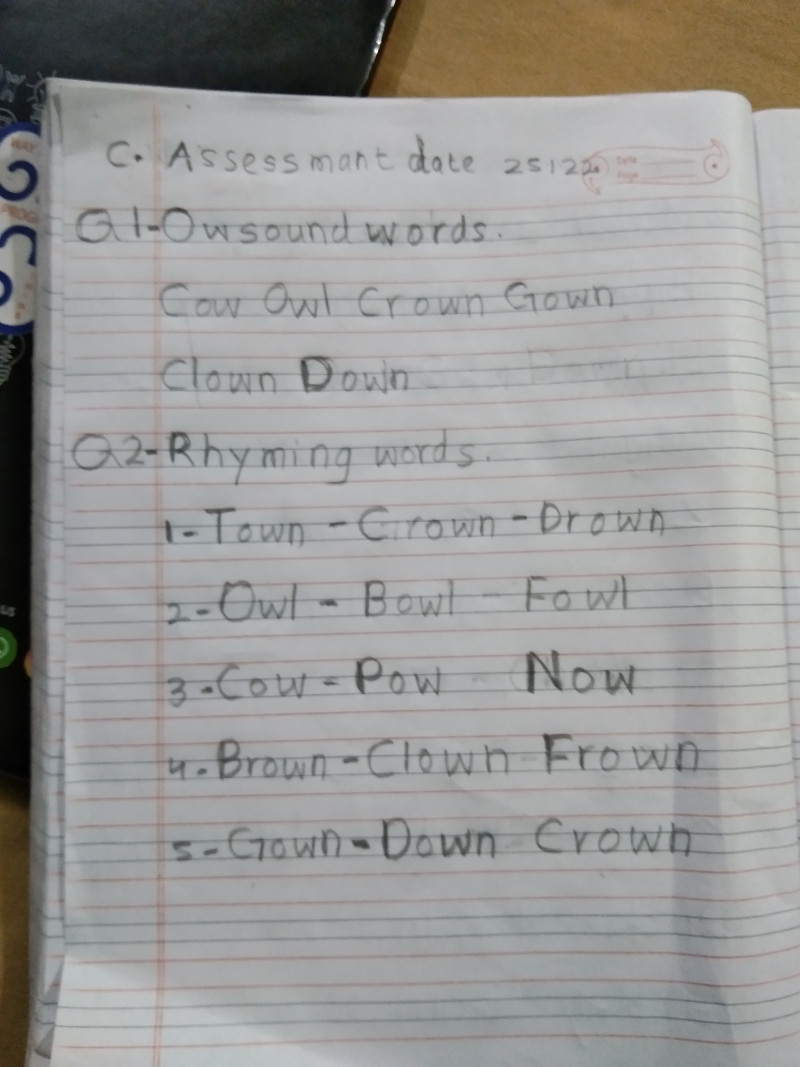 C. Assessmant date 25122
Q1-Ow sound words.
Cow Owl Crown Gown
Clown Down
Q2-Rhyming words.
1-Town - Crown - Drown
2-Owl - Bowl - Fowl
3-Cow - Pow Now
4.Brown - Clown Frown
5-Gown - Down Crown